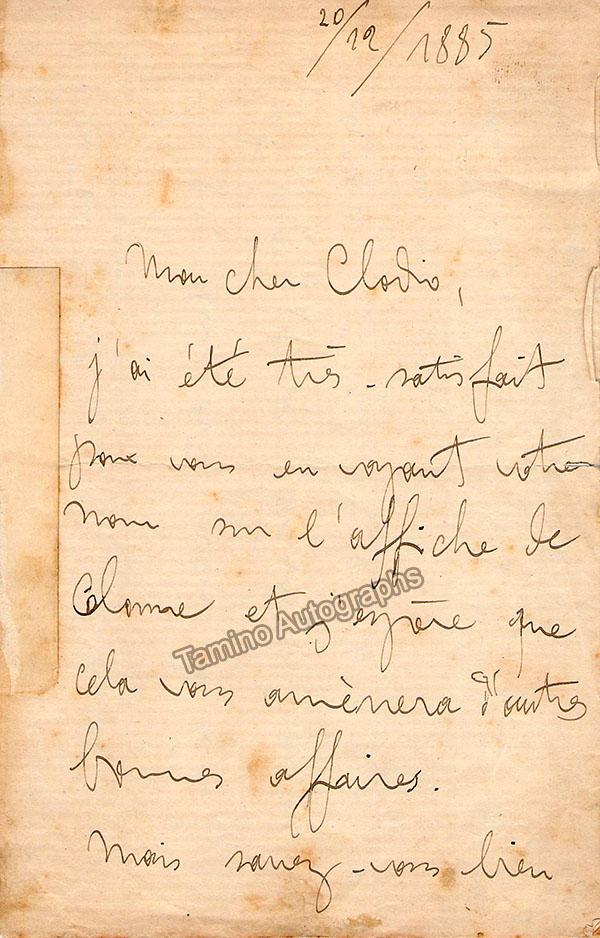 20/12/1885
Mon cher Clodio,
j'ai été très satisfait
pour vous en voyant votre
nom sur l'affiche de
Colonne et j'espère que
Tamino Autographs
cela vous amènera d'autres
bonnes affaires.
Mais savez-vous bien